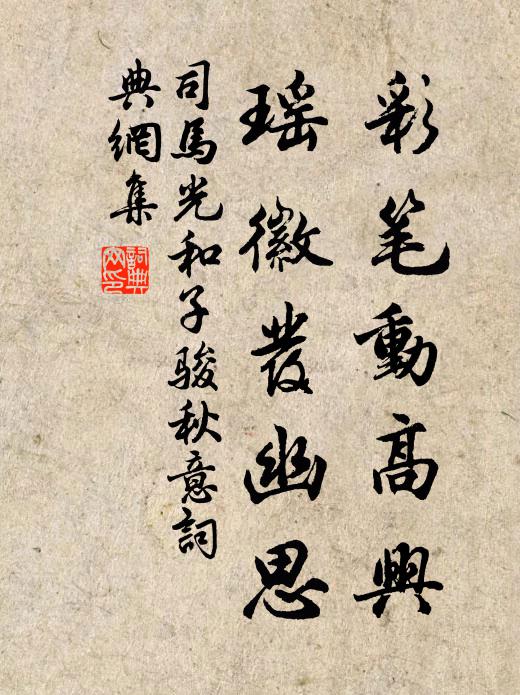 彩笔動高興
瑶徽發幽思
司馬光和子骏秋意詞
典網集
詞典
网印